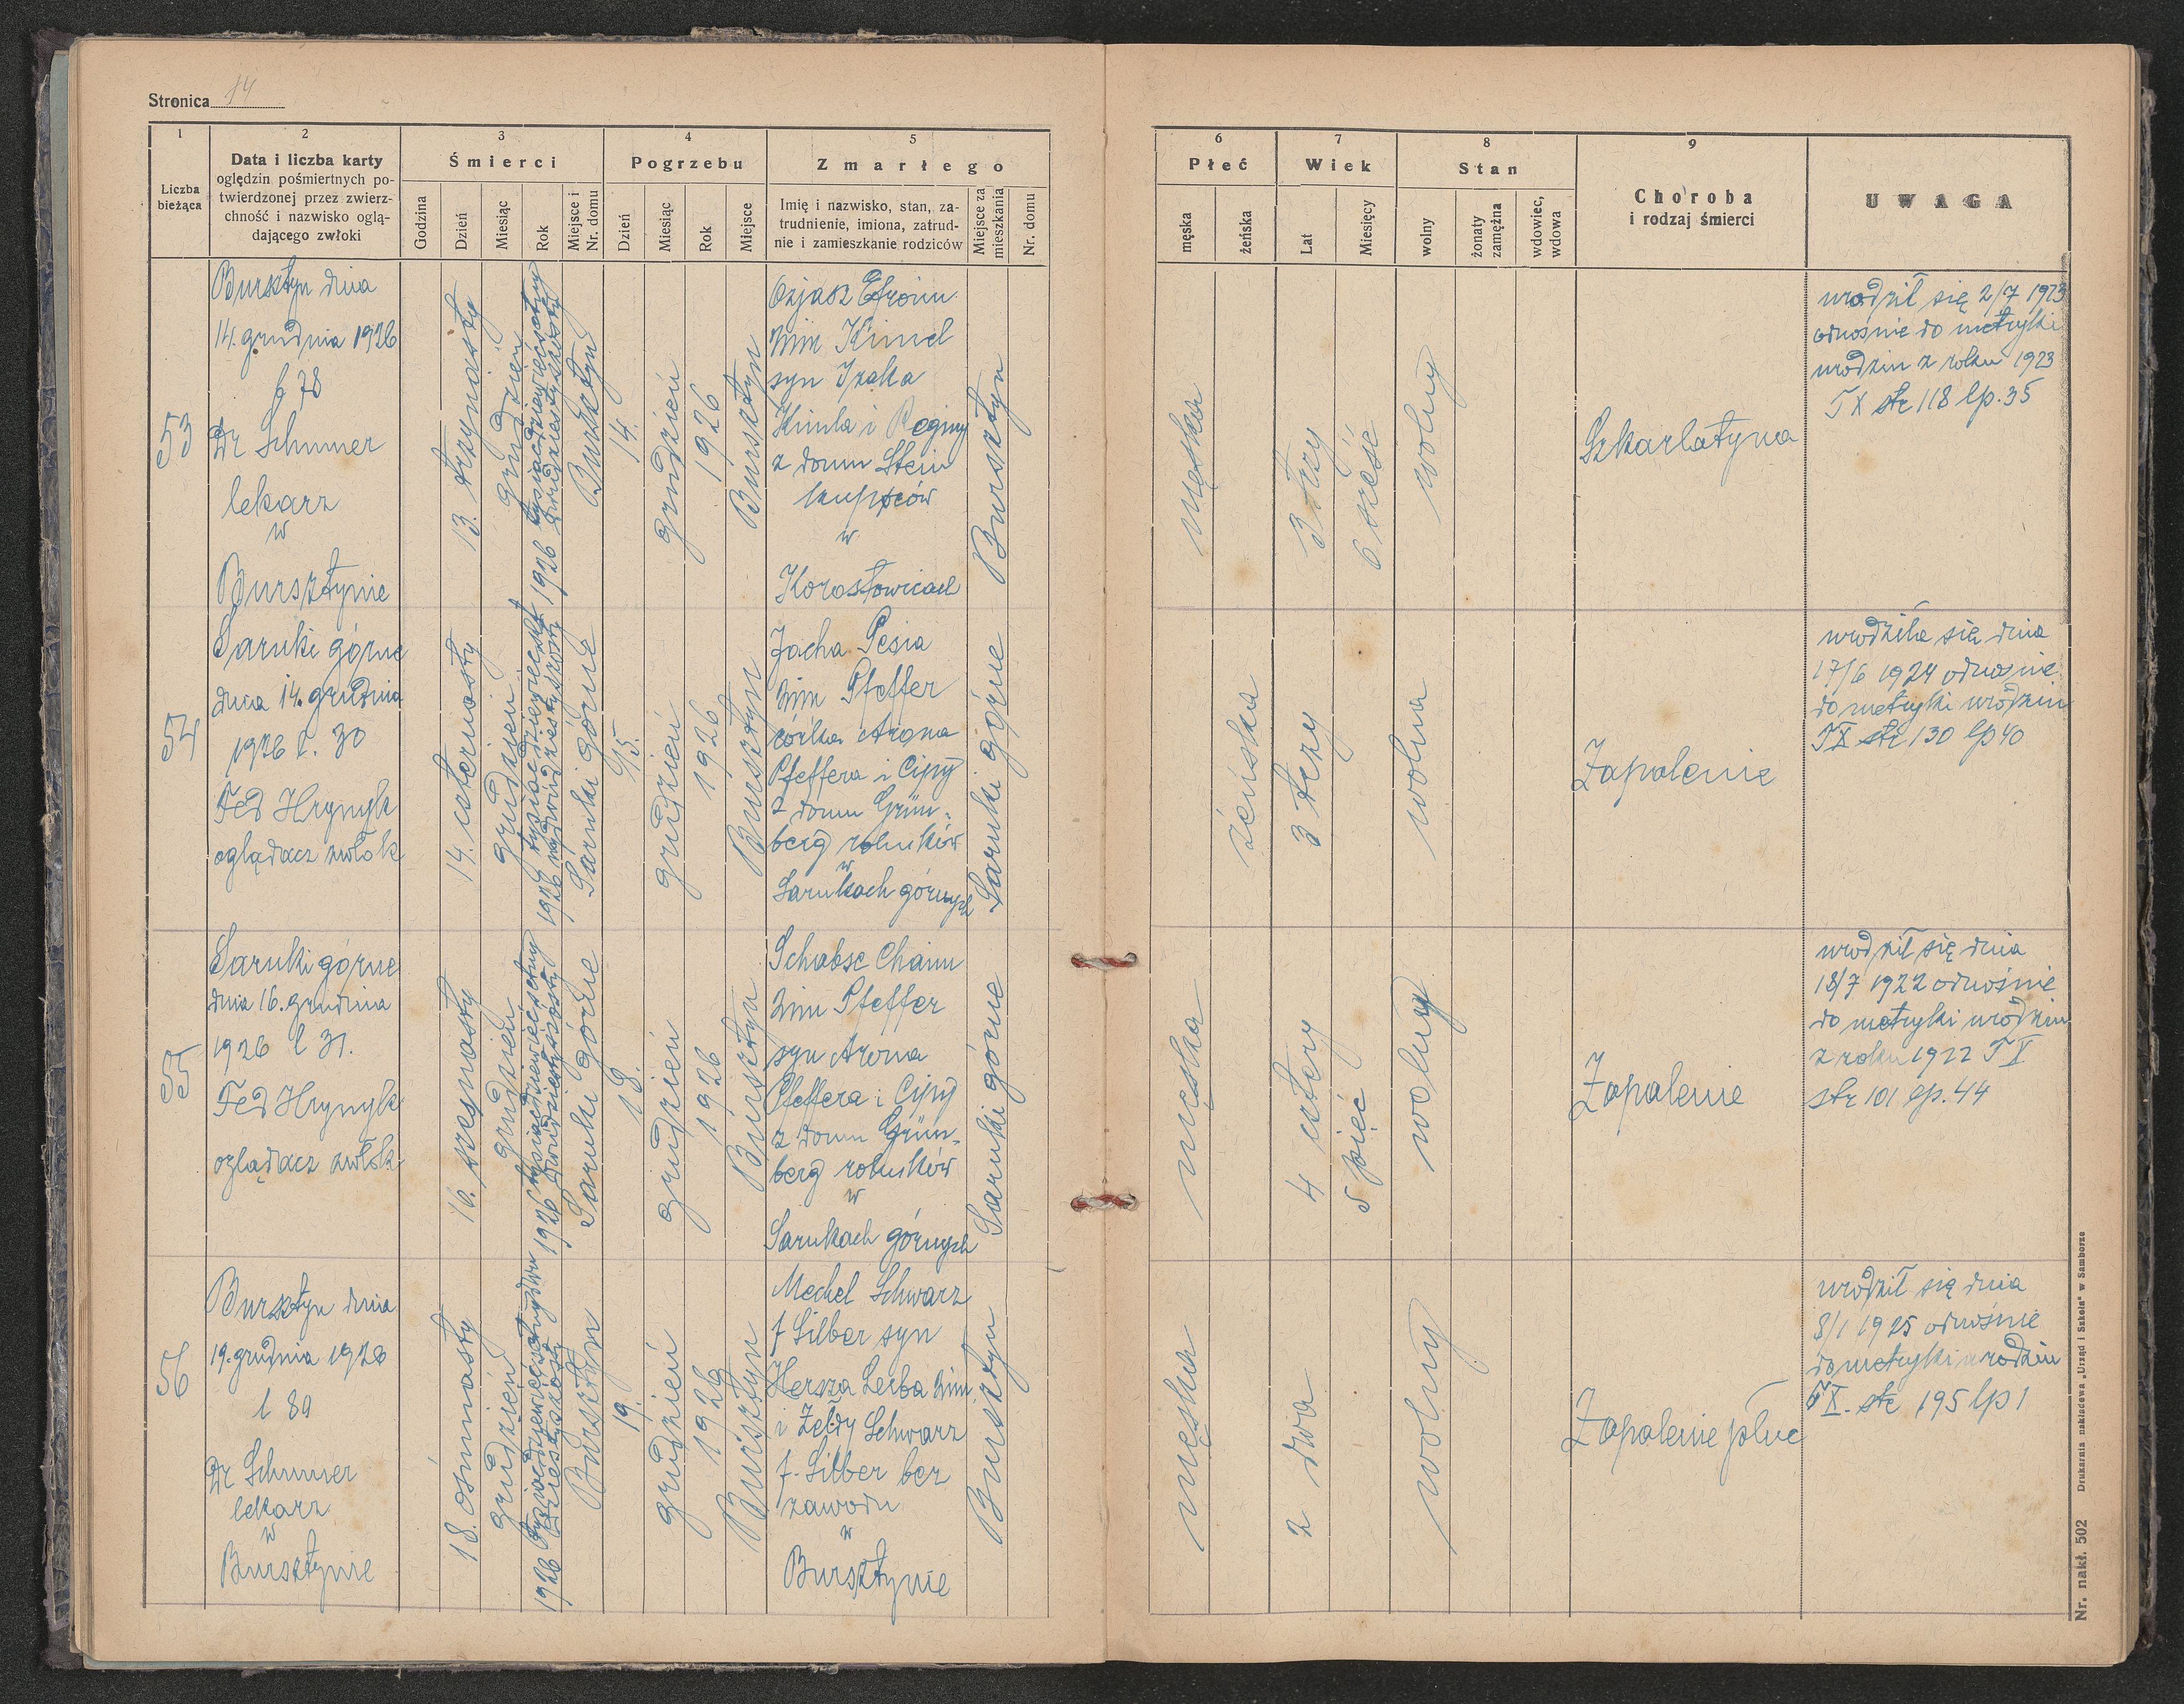 Stronica 14
1
Liczba
bieżąca
2
Data i liczba karty
oględzin pośmiertnych po-
twierdzonej przez zwierz-
chność i nazwisko oglą-
dającego zwłoki
3
Śmierci
Godzina
Dzień
Miesiąc
Rok
Miejsce i
Nr. domu
4
Pogrzebu
Dzień
Miesiąc
Rok
Miejsce
5
Zmarłego
Imię i nazwisko, stan, za-
trudnienie, imiona, zatrud-
nie i zamieszkanie rodziców
Miejsce za
mieszkania
Nr. domu
6
Płeć
męska
żeńska
7
Wiek
Lat
Miesięcy
8
Stan
wolny
żonaty
zamężna
wdowiec,
wdowa
9
Choroba
i rodzaj śmierci
UWAGA
53
Bursztyn dnia
14. grudnia 1926
l 78
Dr Schmer
lekarz
w
Bursztynie
13. trzynasty
grudzień
1926 tysiącdziewięćsetny
dwudziestyszósty
Bursztyn
14.
grudzień
1926
Bursztyn
Ozjasz Efroim
2im Kimel
syn Izaka
Kimla i Reginy
z domu Stein
kupców
w
Korostowicach
Bursztyn
męska
3 trzy
6 sześć
wolny
Szkarlatyna
urodził się 2/7 1923
odnośnie do metryki
urodzin z roku 1923
T X str 118 lp. 35
54
Sarnki górne
dnia 14. grudnia
1926 l. 30
Fed Hrynyk
oglądacz zwłok
14. czternasty
grudzień
1926 tysiącdziewięćset
ny dwudziestyszósty
Sarnki górne
15.
grudzień
1926
Bursztyn
Jacha Pesia
2im Pfeffer
córka Arona
Pfeffera i Cipy
z domu Grün-
berg rolników
w
Sarnkach górnych
Sarnki górne
żeńska
3 trzy
wolna
Zapalenie
urodziła się dnia
17/6 1924 odnośnie
do metryki urodzin
T X str 130 lp 40
55
Sarnki górne
dnia 16. grudnia
1926 l 31.
Fed Hrynyk
oglądacz zwłok
16. szesnasty
grudzień
1926 tysiącdziewięćsetny
dwudziestyszósty
Sarnki górne
18.
grudzień
1926
Bursztyn
Schabse Chaim
2im Pfeffer
syn Arona
Pfeffera i Cipy
z domu Grün-
berg rolników
w
Sarnkach górnych
Sarnki górne
męska
4 cztery
5 pięć
wolny
Zapalenie
urodził się dnia
18/7 1922 odnośnie
do metryki urodzin
z roku 1922 T X
str 101 lp. 44
56
Bursztyn dnia
19. grudnia 1926
l 80
Dr Schmer
lekarz
w
Bursztynie
18. ośmnasty
grudzień
1926 tysiącdziewięćsetnydwu
dziestyszósty
Bursztyn
19.
grudzień
1926
Bursztyn
Mechel Schwarz
f Silber syn
Hersza Leiba 2im
i Zeldy Schwarz
f. Silber bez
zawodu
w
Bursztynie
Bursztyn
męska
2 dwa
wolny
Zapalenie płuc
urodził się dnia
8/1 1925 odnośnie
do metryki urodzin
T X. str 195 lp 1
Nr. nakł. 502 Drukarnia nakładowa „Urząd i Szkoła" w Samborze